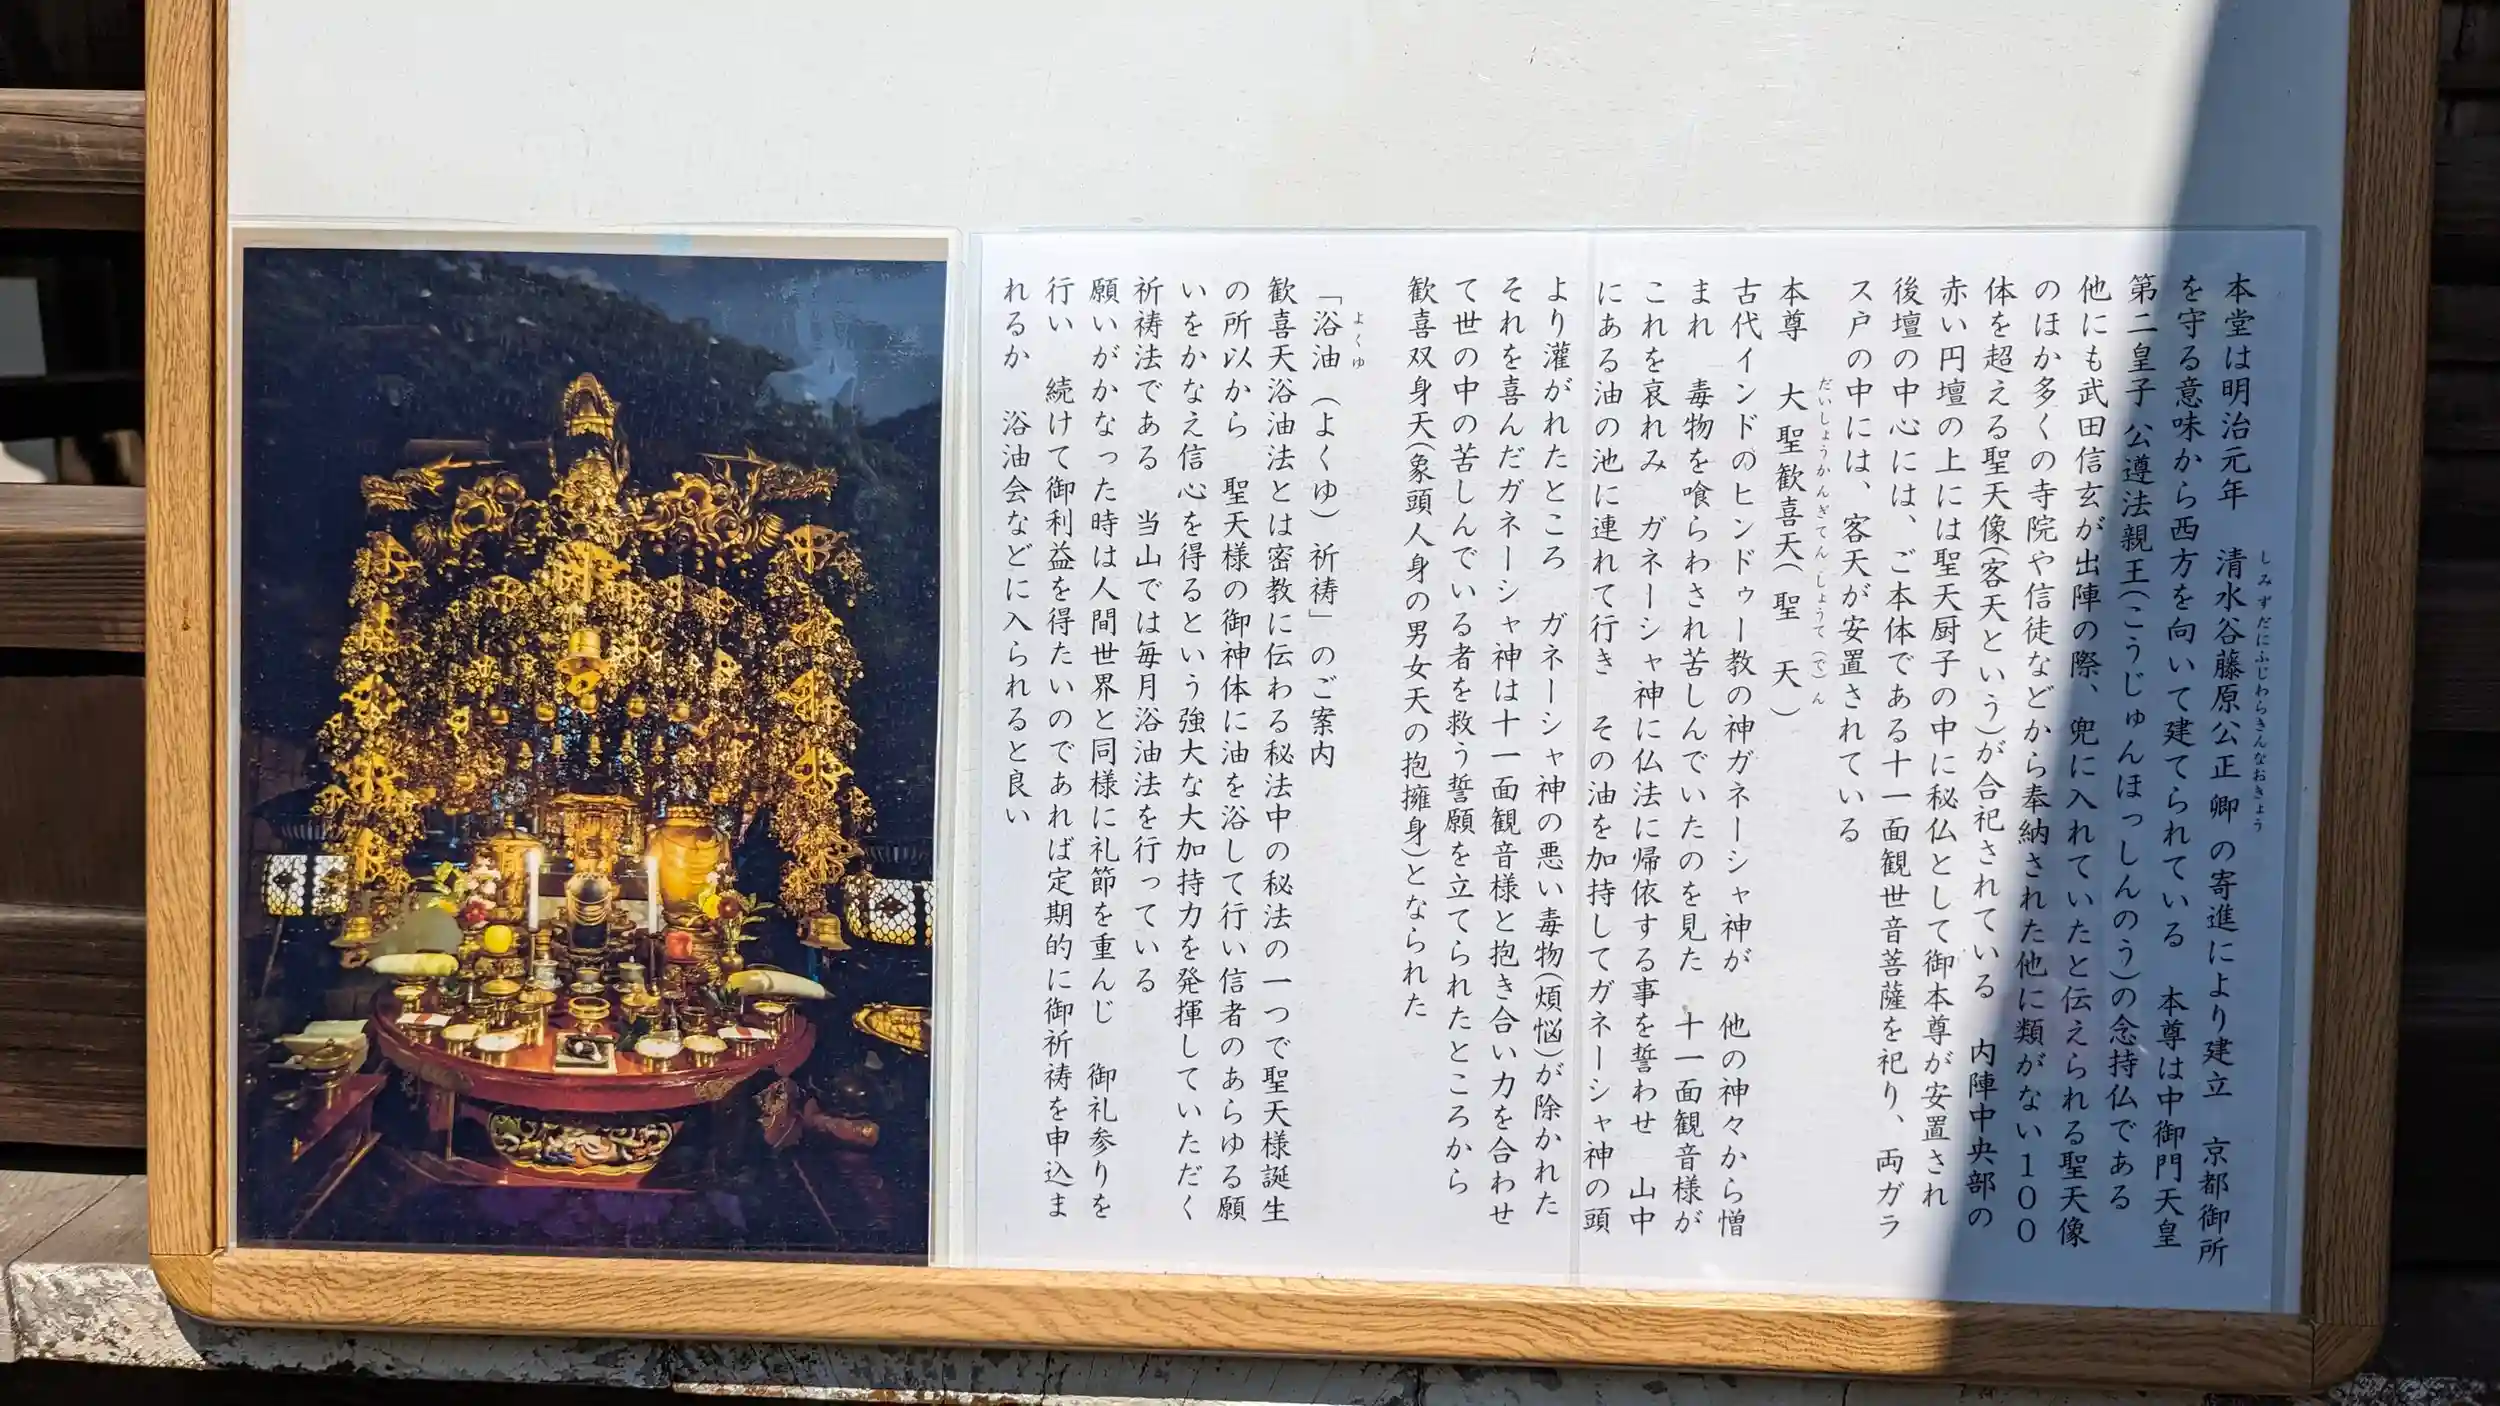 本堂は明治元年　清水谷藤原公正卿の寄進により建立　京都御所
しみずだにふじわらきんなおきょう
を守る意味から西方を向いて建てられている　本尊は中御門天皇
第二皇子 公遵法親王(こうじゅんほっしんのう)の念持仏である
他にも武田信玄が出陣の際、兜に入れていたと伝えられる聖天像
のほか多くの寺院や信徒などから奉納された他に類がない１００
体を超える聖天像(客天という)が合祀されている　内陣中央部の
赤い円壇の上には聖天厨子の中に秘仏として御本尊が安置され
後壇の中心には、ご本体である十一面観世音菩薩を祀り、両ガラ
ス戸の中には、客天が安置されている
本尊　大聖歓喜天(聖　天)
だいしょうかんぎてん しょうて(で)ん
古代インドのヒンドゥー教の神ガネーシャ神が　他の神々から憎
まれ　毒物を喰らわされ苦しんでいたのを見た　十一面観音様が
これを哀れみ　ガネーシャ神に仏法に帰依する事を誓わせ　山中
にある油の池に連れて行き　その油を加持してガネーシャ神の頭
より灌がれたところ　ガネーシャ神の悪い毒物(煩悩)が除かれた
それを喜んだガネーシャ神は十一面観音様と抱き合い力を合わせ
て世の中の苦しんでいる者を救う誓願を立てられたところから
歓喜双身天(象頭人身の男女天の抱擁身)となられた
「浴油（よくゆ）祈祷」のご案内
よくゆ
歓喜天浴油法とは密教に伝わる秘法中の秘法の一つで聖天様誕生
の所以から　聖天様の御神体に油を浴して行い信者のあらゆる願
いをかなえ信心を得るという強大な大加持力を発揮していただく
祈祷法である　当山では毎月浴油法を行っている
願いがかなった時は人間世界と同様に礼節を重んじ　御礼参りを
行い　続けて御利益を得たいのであれば定期的に御祈祷を申込ま
れるか　浴油会などに入られると良い